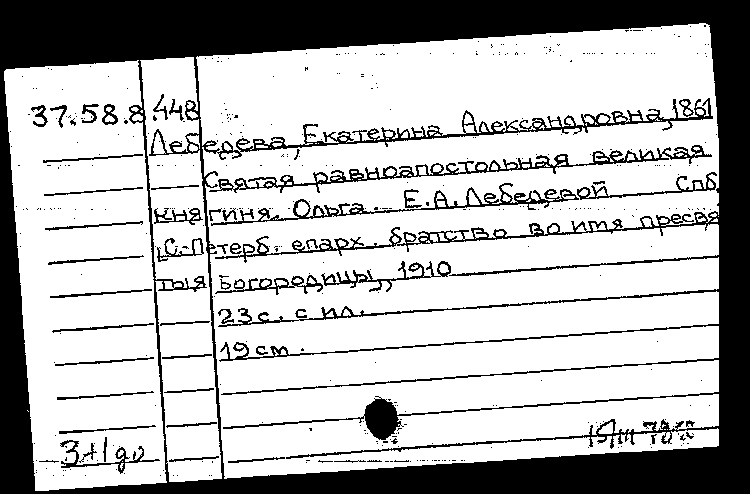 37.58.8.448
Лебедева, Екатерина Александровна, 1861
Святая равноапостольная великая
княгиня Ольга. Е.А. Лебедевой Спб,
"С.-Петерб. епарх. братство во имя пресвя
тыя Богородицы", 1910
23 с. с ил.
19 cm.